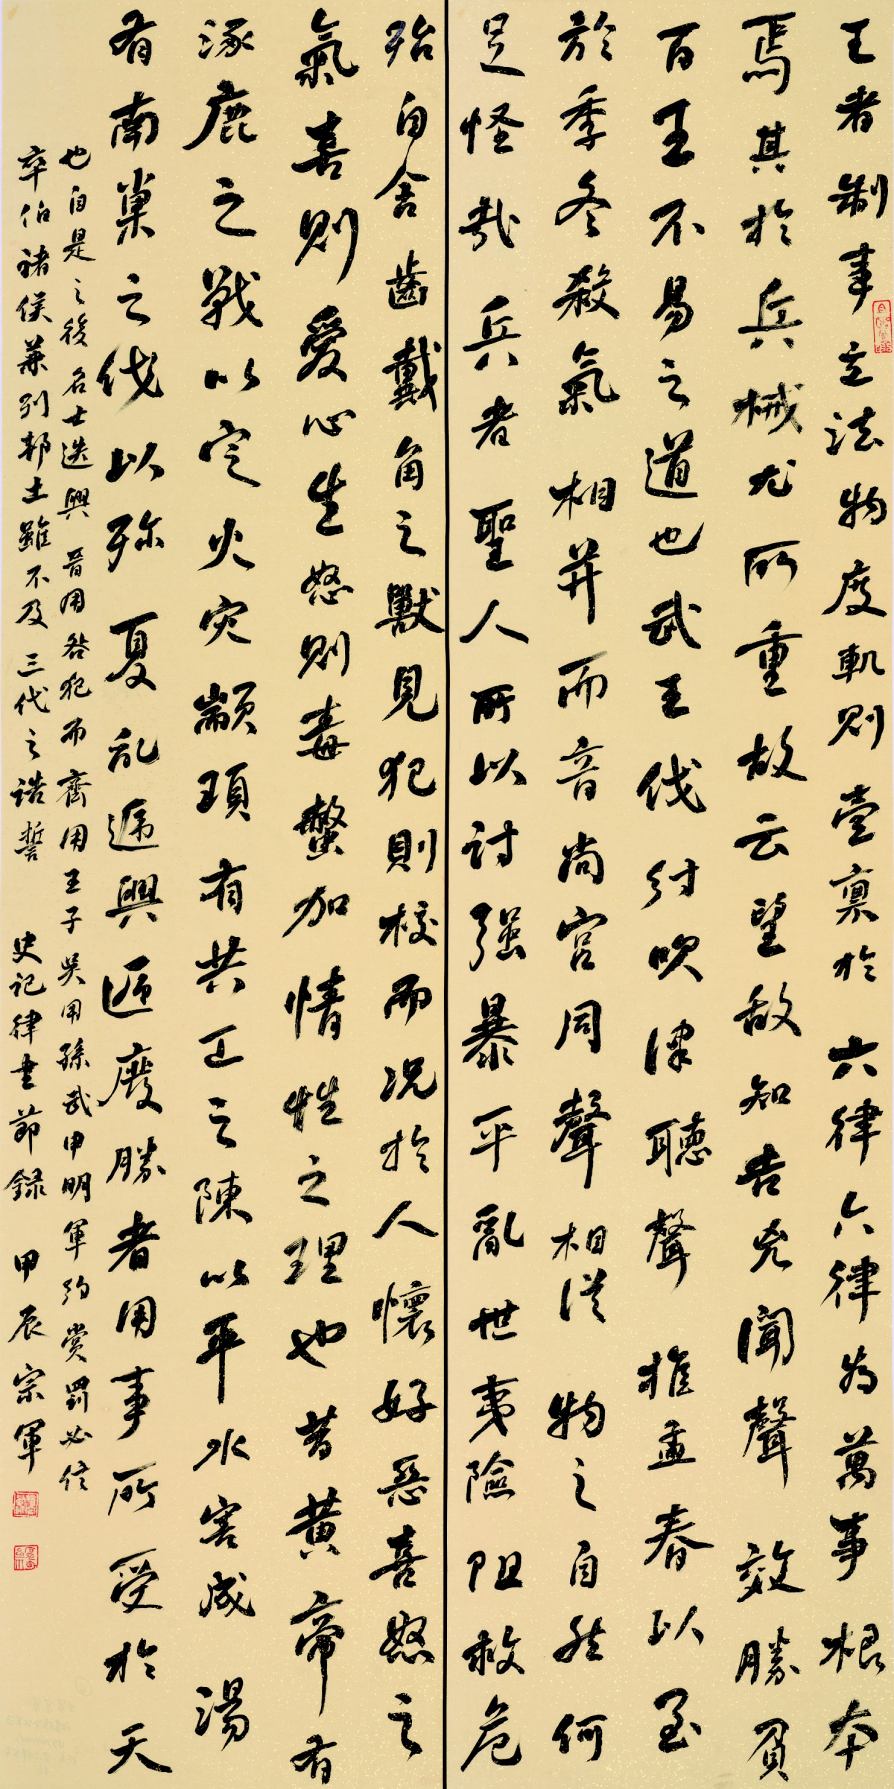 王者制事立法物度軌則壹稟於六律六律為萬事根本
焉其於兵械尤所重故云望敵知吉凶聞聲效勝負
百王不易之道也武王伐紂吹律聽聲推孟春以至
於季冬殺氣相并而音尚宮同聲相從物之自然何
足怪哉兵者聖人所以討強暴平亂世夷險阻救危
殆自含齒戴角之獸見犯則校而況於人懷好惡喜怒之
氣喜則愛心生怒則毒螫加情性之理也昔黃帝有
涿鹿之戰以定火災顓頊有共工之陳以平水害成湯
有南巢之伐以殄夏亂遞興遞廢勝者用事所受於天
也自是之後名士迭興晉用咎犯而齊用王子吳用孫武申明軍約賞罰必信
卒伯諸侯兼列邦土雖不及三代之誥誓 史記律書節錄 甲辰宗軍